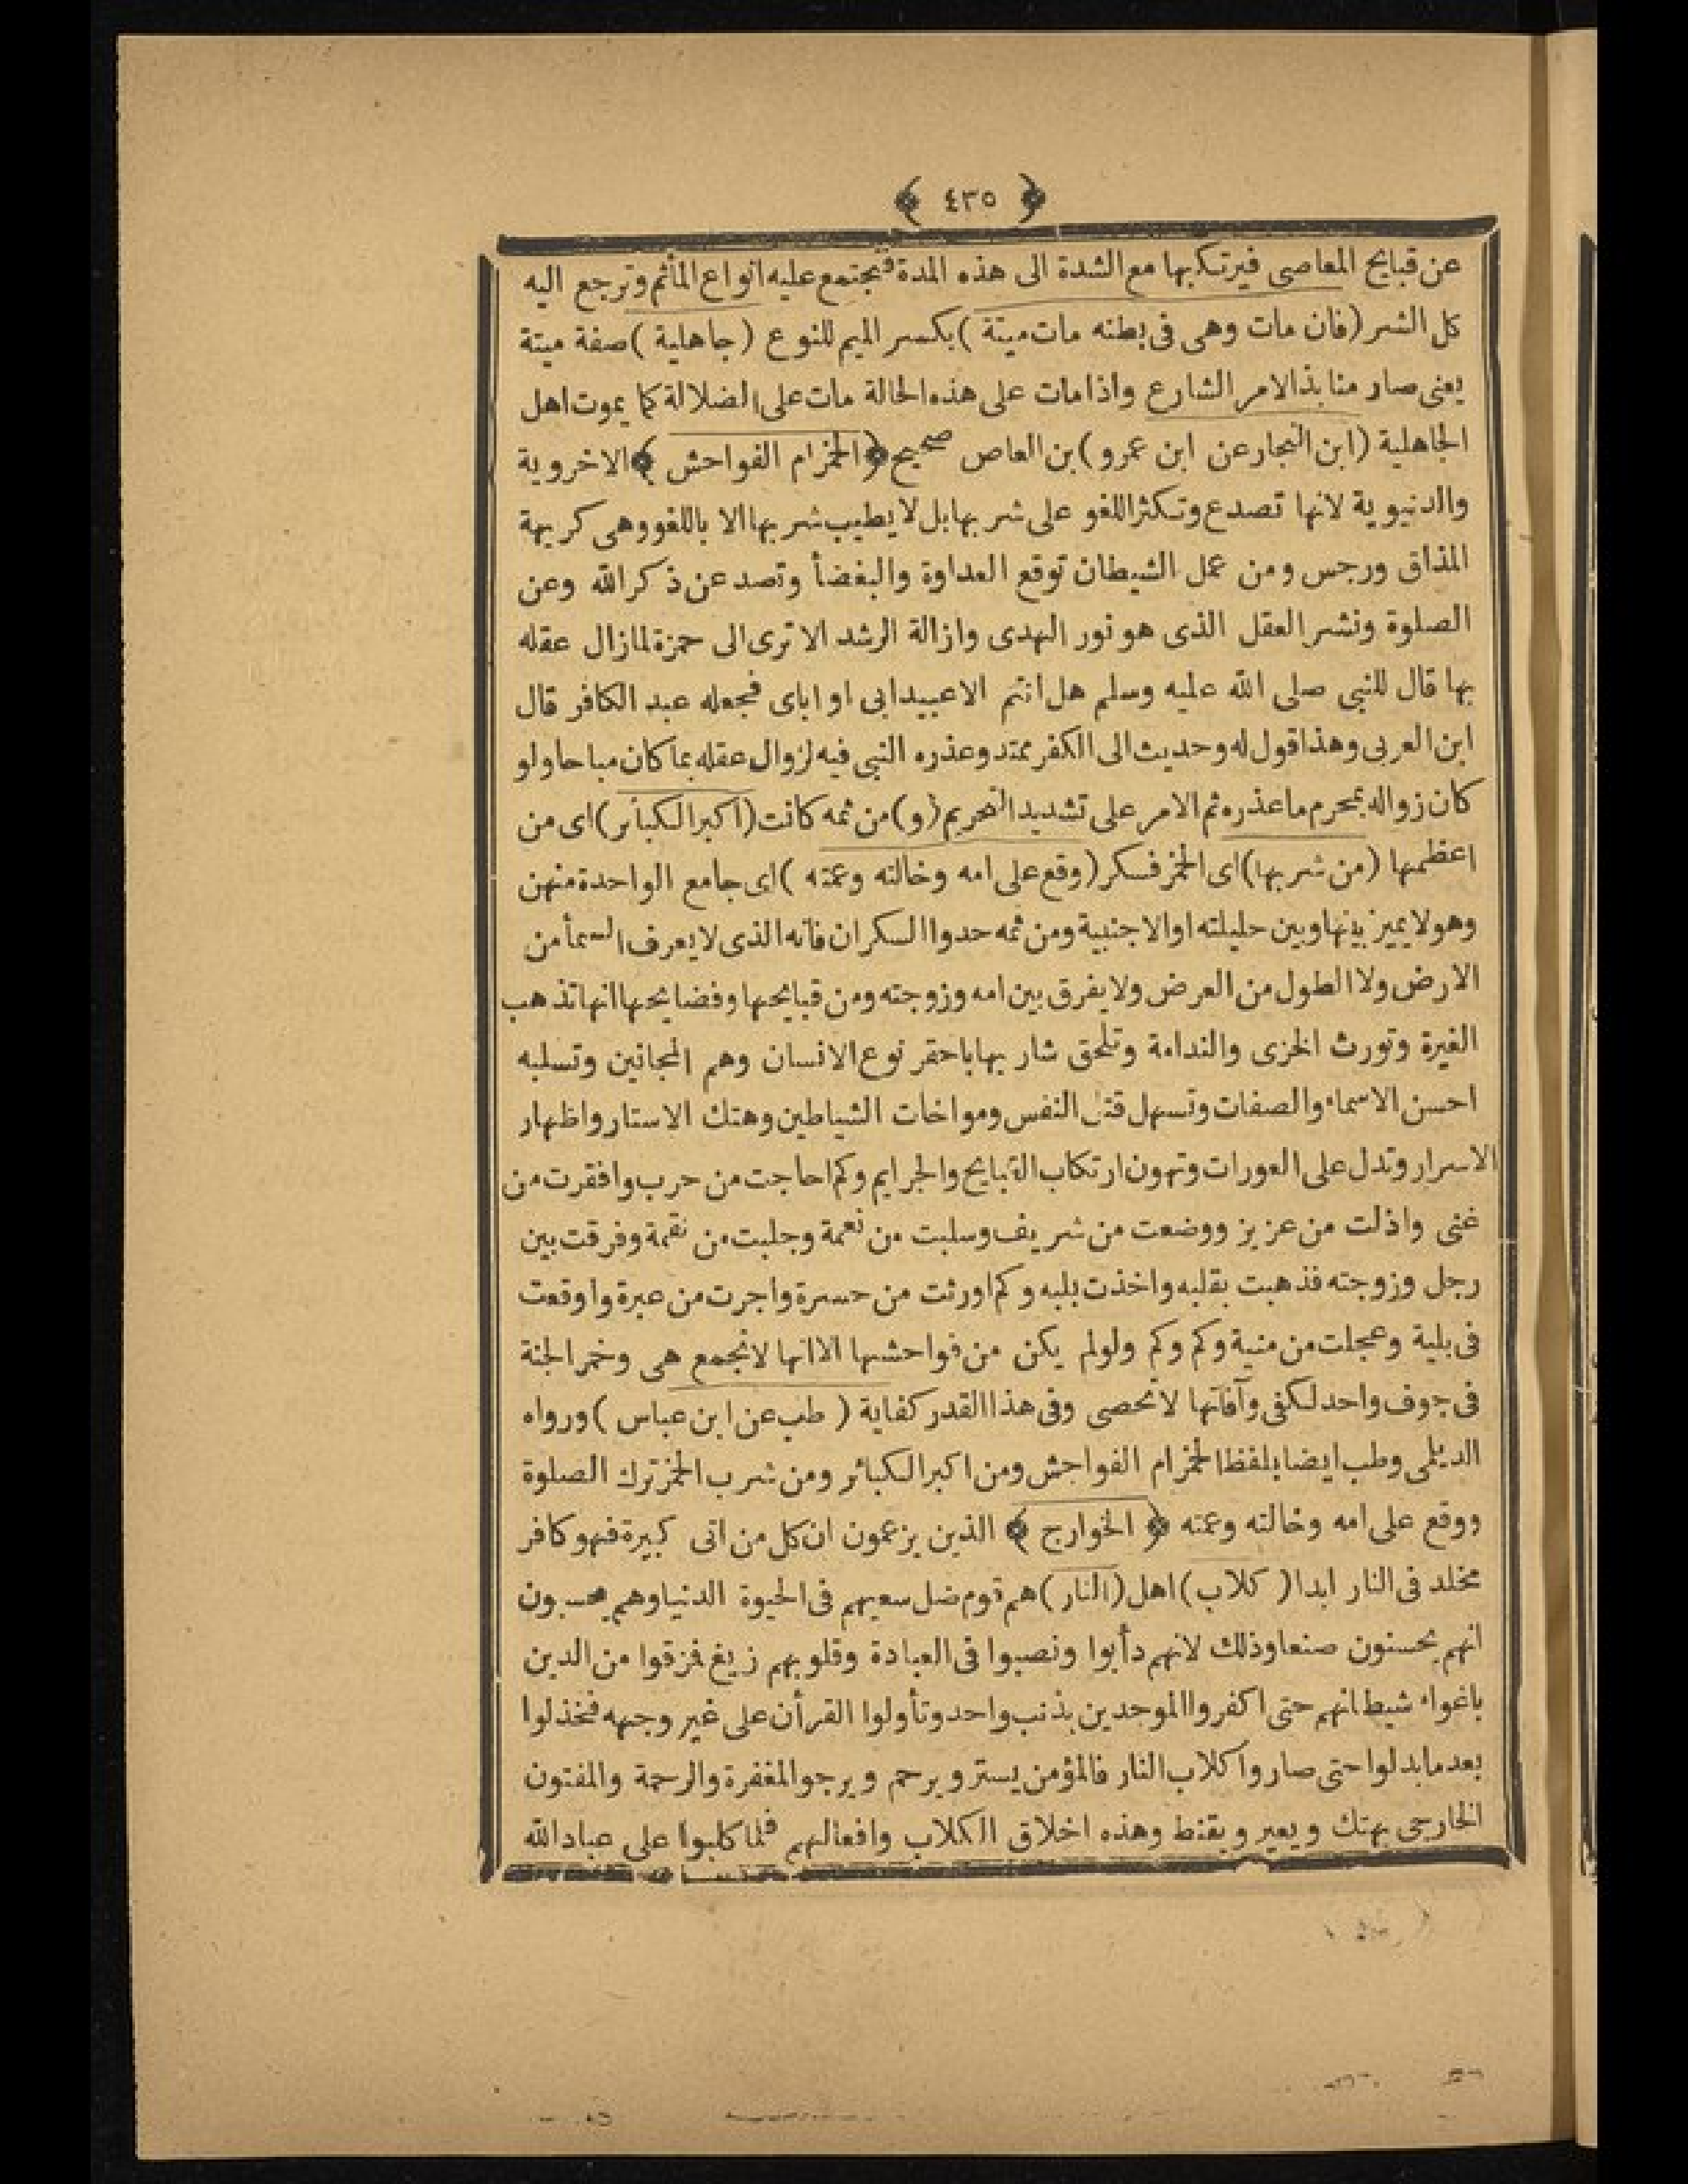 ﴿ ٤٣٥ ﴾
عن قبايح المعاصى فيرتكبها مع الشدة الى هذه المدة فتجتمع عليه انواع المأثم وترجع اليه
كل الشر (فان مات وهى فى بطنه مات ميتة) بكسر الميم للنوع (جاهلية) صفة ميتة
يعنى صار منابذا لامر الشارع واذا مات على هذه الحالة مات على الضلالة كما يموت اهل
الجاهلية (ابن النجار عن ابن عمرو) بن العاص صحيح ﴿الخمر ام الفواحش﴾ الاخروية
والدنيوية لانها تصدع وتكثر اللغو على شربها بل لا يطيب شربها الا باللغو وهى كريهة
المذاق ورجس ومن عمل الشيطان توقع العداوة والبغضأ وتصد عن ذكر الله وعن
الصلوة ونشر العقل الذى هو نور الهدى وازالة الرشد الا ترى الى حمزة لما زال عقله
بها قال للنبى صلى الله عليه وسلم هل انتم الا عبيد ابى او اباى فجعله عبد الكافر قال
ابن العربى وهذا قول له وحديث الى الكفر ممتد وعذره النبى فيه لزوال عقله بما كان مباحا ولو
كان زواله بمحرم ما عذره ثم الامر على تشديد التحريم (و) من ثمه كانت (اكبر الكبائر) اى من
اعظمها (من شربها) اى الخمر فسكر (وقع على امه وخالته وعمته) اى جامع الواحدة منهن
وهو لا يميز بينها وبين حليلته او الاجنبية ومن ثمه حدوا السكران فانه الذى لا يعرف السمأ من
الارض ولا الطول من العرض ولا يفرق بين امه وزوجته ومن قبايحها وفضايحها انها تذهب
الغيرة وتورث الخزى والندامة وتلحق شاربها باحقر نوع الانسان وهم المجانين وتسلبه
احسن الاسماء والصفات وتسهل قتل النفس ومواخات الشياطين وهتك الاستار واظهار
الاسرار وتدل على العورات وتهون ارتكاب القبايح والجرايم وكم احاجت من حرب وافقرت من
غنى واذلت من عزيز ووضعت من شريف وسلبت من نعمة وجلبت من نقمة وفرقت بين
رجل وزوجته فذهبت بقلبه واخذت بلبه وكم اورثت من حسرة واجرت من عبرة واوقعت
فى بلية وعجلت من منية وكم وكم ولو لم يكن من فواحشها الا انها لا تجمع هى وخمر الجنة
فى جوف واحد لكفى وآفاتها لا تحصى وفى هذا القدر كفاية (طب عن ابن عباس) ورواه
الديلمى وطب ايضا بلفظ الخمر ام الفواحش ومن اكبر الكبائر ومن شرب الخمر ترك الصلوة
ووقع على امه وخالته وعمته ﴿الخوارج﴾ الذين يزعمون ان كل من اتى كبيرة فهو كافر
مخلد فى النار ابدا (كلاب) اهل (النار) هم قوم ضل سعيهم فى الحيوة الدنيا وهم يحسبون
انهم يحسنون صنعا وذلك لانهم دأبوا ونصبوا فى العبادة وقلوبهم زيغ فمزقوا من الدين
باغواء شيطانهم حتى اكفروا الموحدين بذنب واحد وتأولوا القرأن على غير وجهه فخذلوا
بعد ما بدلوا حتى صاروا كلاب النار فالمؤمن يستر ويرحم ويرجو المغفرة والرحمة والمفتون
الخارجى يهتك ويعير ويقنط وهذه اخلاق الكلاب وافعالهم فلما كلبوا على عباد الله